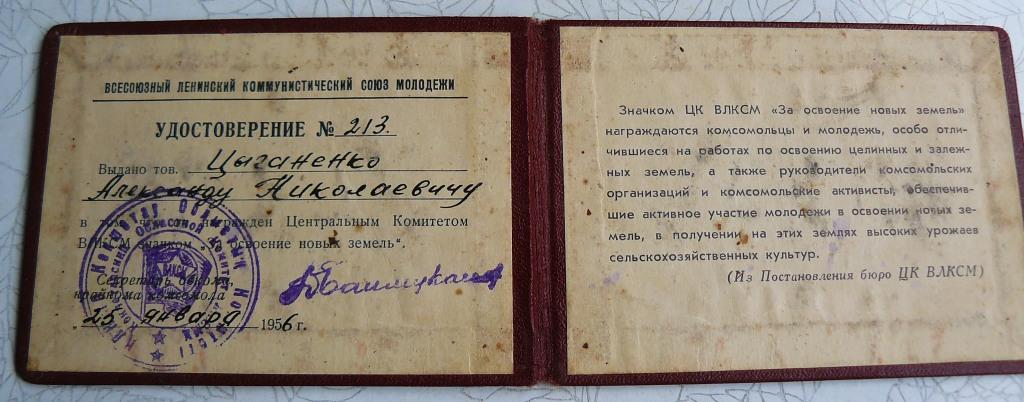 ВСЕСОЮЗНЫЙ ЛЕНИНСКИЙ КОММУНИСТИЧЕСКИЙ СОЮЗ МОЛОДЕЖИ
УДОСТОВЕРЕНИЕ № 213.
Выдано тов. Цыганенко
Александру Николаевичу
в том, что награжден Центральным Комитетом
ВЛКСМ значком „За освоение новых земель“.
Секретарь обкома,
крайкома комсомола
„25 января 1956 г.
Значком ЦК ВЛКСМ «За освоение новых земель»
награждаются комсомольцы и молодежь, особо отли-
чившиеся на работах по освоению целинных и залеж-
ных земель, а также руководители комсомольских
организаций и комсомольские активисты, обеспечив-
шие активное участие молодежи в освоении новых зе-
мель, в получении на этих землях высоких урожаев
сельскохозяйственных культур.
(Из Постановления бюро ЦК ВЛКСМ)